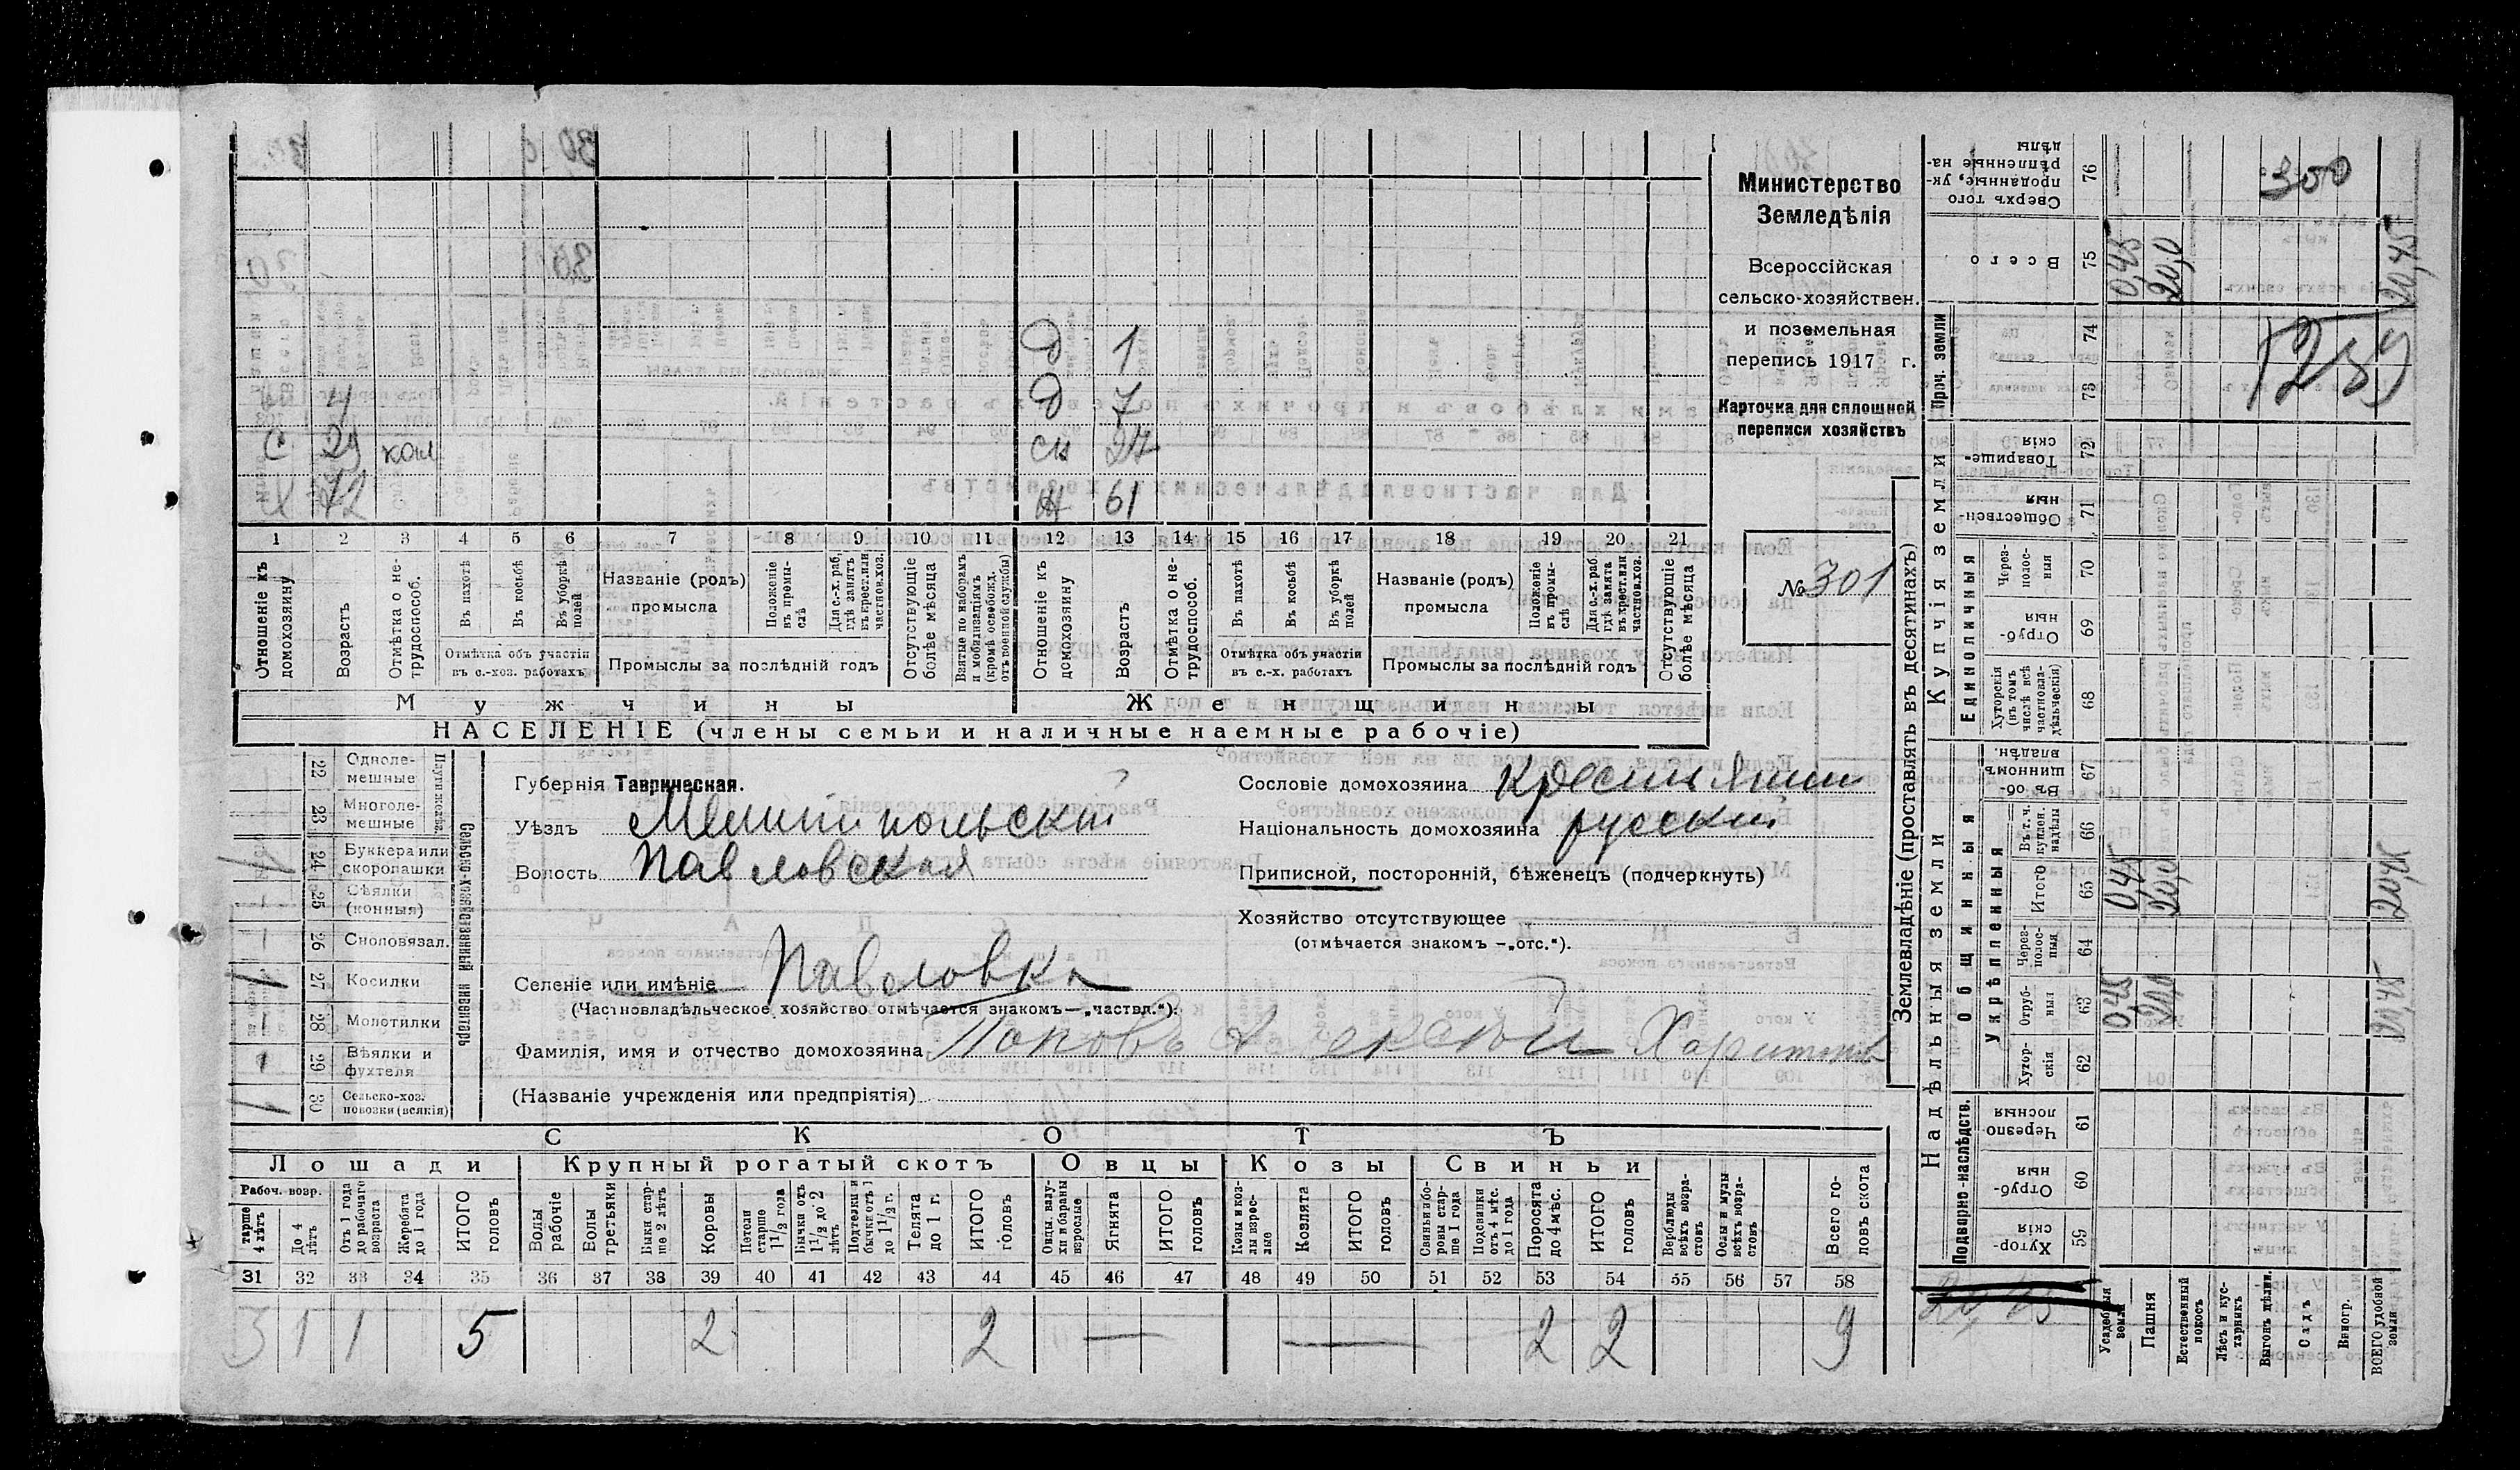 300
Министерство
Земледѣлія
Всероссійская
сельско-хозяйствен.
и поземельная
перепись 1917 г.
Карточка для сплошной
переписи хозяйствъ
№ 301
1259
Д 1
4 Д 7
С 29 кол сн 27
Х 72 Ж 61
1 2 3 4 5 6 7 8 9 10 11 12 13 14 15 16 17 18 19 20 21
Отношеніе къ домохозяину
Возрастъ
Отмѣтка о не-трудоспособ.
Въ пахотѣ
Въ косьбѣ
Въ уборкѣ полей
Отмѣтка объ участіи
въ с.-хоз. работахъ
Названіе (родъ)
промысла
Положеніе въ промы-слѣ
Для с.-х. раб, гдѣ занятъ въ крест. или частнов. хоз.
Промыслы за послѣдній годъ
Отсутствующіе болѣе мѣсяца
Взятые по наборамъ и мобилизаціямъ (кромѣ освобожд. отъ военной службы)
Отношеніе къ домохозяину
Возрастъ
Отмѣтка о не-трудоспособ.
Въ пахотѣ
Въ косьбѣ
Въ уборкѣ полей
Отмѣтка объ участіи
въ с.-х. работахъ
Названіе (родъ)
промысла
Положеніе въ промы-слѣ
Для с.-х. раб. гдѣ занята въ крест. или частнов. хоз.
Промыслы за послѣдній годъ
Отсутствующіе болѣе мѣсяца
Мужчины
Женщины
НАСЕЛЕНІЕ (члены семьи и наличные наемные рабочіе)
Сельско-хозяйственный инвентарь
22 Одноле-мешные
23 Многоле-мешные
24 Буккера или скоропашки 1
25 Сѣялки (конныя) –
26 Сноповязал. –
27 Косилки 1
28 Молотилки –
29 Вѣялки и фухтеля
30 Сельско-хоз. повозки (всякія) 1
Губернія Таврическая.
Уѣздъ Мелитопольскій
Волость Павловская
Селеніе или имѣніе Павловка
(Частновладѣльческое хозяйство отмѣчается знакомъ—„частвл.“).
Фамилія, имя и отчество домохозяина Поповъ Алексѣй Харитон
(Названіе учрежденія или предпріятія)
Сословіе домохозяина крестьянин
Національность домохозяина русскій
Приписной, посторонній, бѣженецъ (подчеркнуть)
Хозяйство отсутствующее
(отмѣчается знакомъ —„отс.“).
СКОТЪ
Лошади
Крупный рогатый скотъ
Овцы
Козы
Свиньи
Рабоч. возр.
старше 4 лѣтъ
До 4 лѣтъ
Отъ 1 года до рабочаго возраста
Жеребята до 1 года
ИТОГО головъ
Волы рабочіе
Волы третьяки
Быки стар-ше 2 лѣтъ
Коровы
Нетели старше 1 1/2 года
Бычки отъ 1 1/2 до 2 лѣтъ
Подтелки и бычки отъ 1 до 1 1/2 г.
Телята до 1 г.
ИТОГО головъ
Овцы, валу-хи и бараны взрослые
Ягнята
ИТОГО головъ
Козы и коз-лы взрос-лые
Козлята
ИТОГО головъ
Свиньи и бо-ровы стар-ше 1 года
Подсвинки отъ 4 мѣс. до 1 года
Поросята до 4 мѣс.
ИТОГО головъ
Верблюды всѣхъ возра-стовъ
Ослы и мулы всѣхъ возра-стовъ
Всего го-ловъ скота
31 32 33 34 35 36 37 38 39 40 41 42 43 44 45 46 47 48 49 50 51 52 53 54 55 56 57 58
3 1 1 5 2 2 — — 2 2 9
Землевладѣніе (проставлять въ десятинахъ)
Надѣльныя земли
Купчія земли
Проч. земли
Подворно-наслѣдств.
Общинныя
Укрѣпленныя
Единоличныя
59 Хутор-скія
60 Отруб-ныя
61 Черезпо-лосныя
62 Хутор-скія
63 Отруб-ныя 0,45 20,0 20,45
64 Через-полос-ныя
65 Итого 0,45 20,0 20,45
66 Въ т. ч. куплен. надѣлы
67 Въ об-щинномъ владѣн.
68 Хуторскія (въ томъ числѣ всѣ частновла-дѣльческія)
69 Отруб-ныя
70 Через-полос-ныя
71 Обществен-ныя
72 Товарище-скія
73
74
75 Всего 0,45 20,0 20,45
76 Сверхъ того проданные, ук-рѣпленные на-дѣлы
Усадебныя земли
Пашня
Естественный покосъ
Лѣсъ и кус-тарникъ
Выгонъ дѣлим.
Садъ
Виногр.
ВСЕГО удобной земли